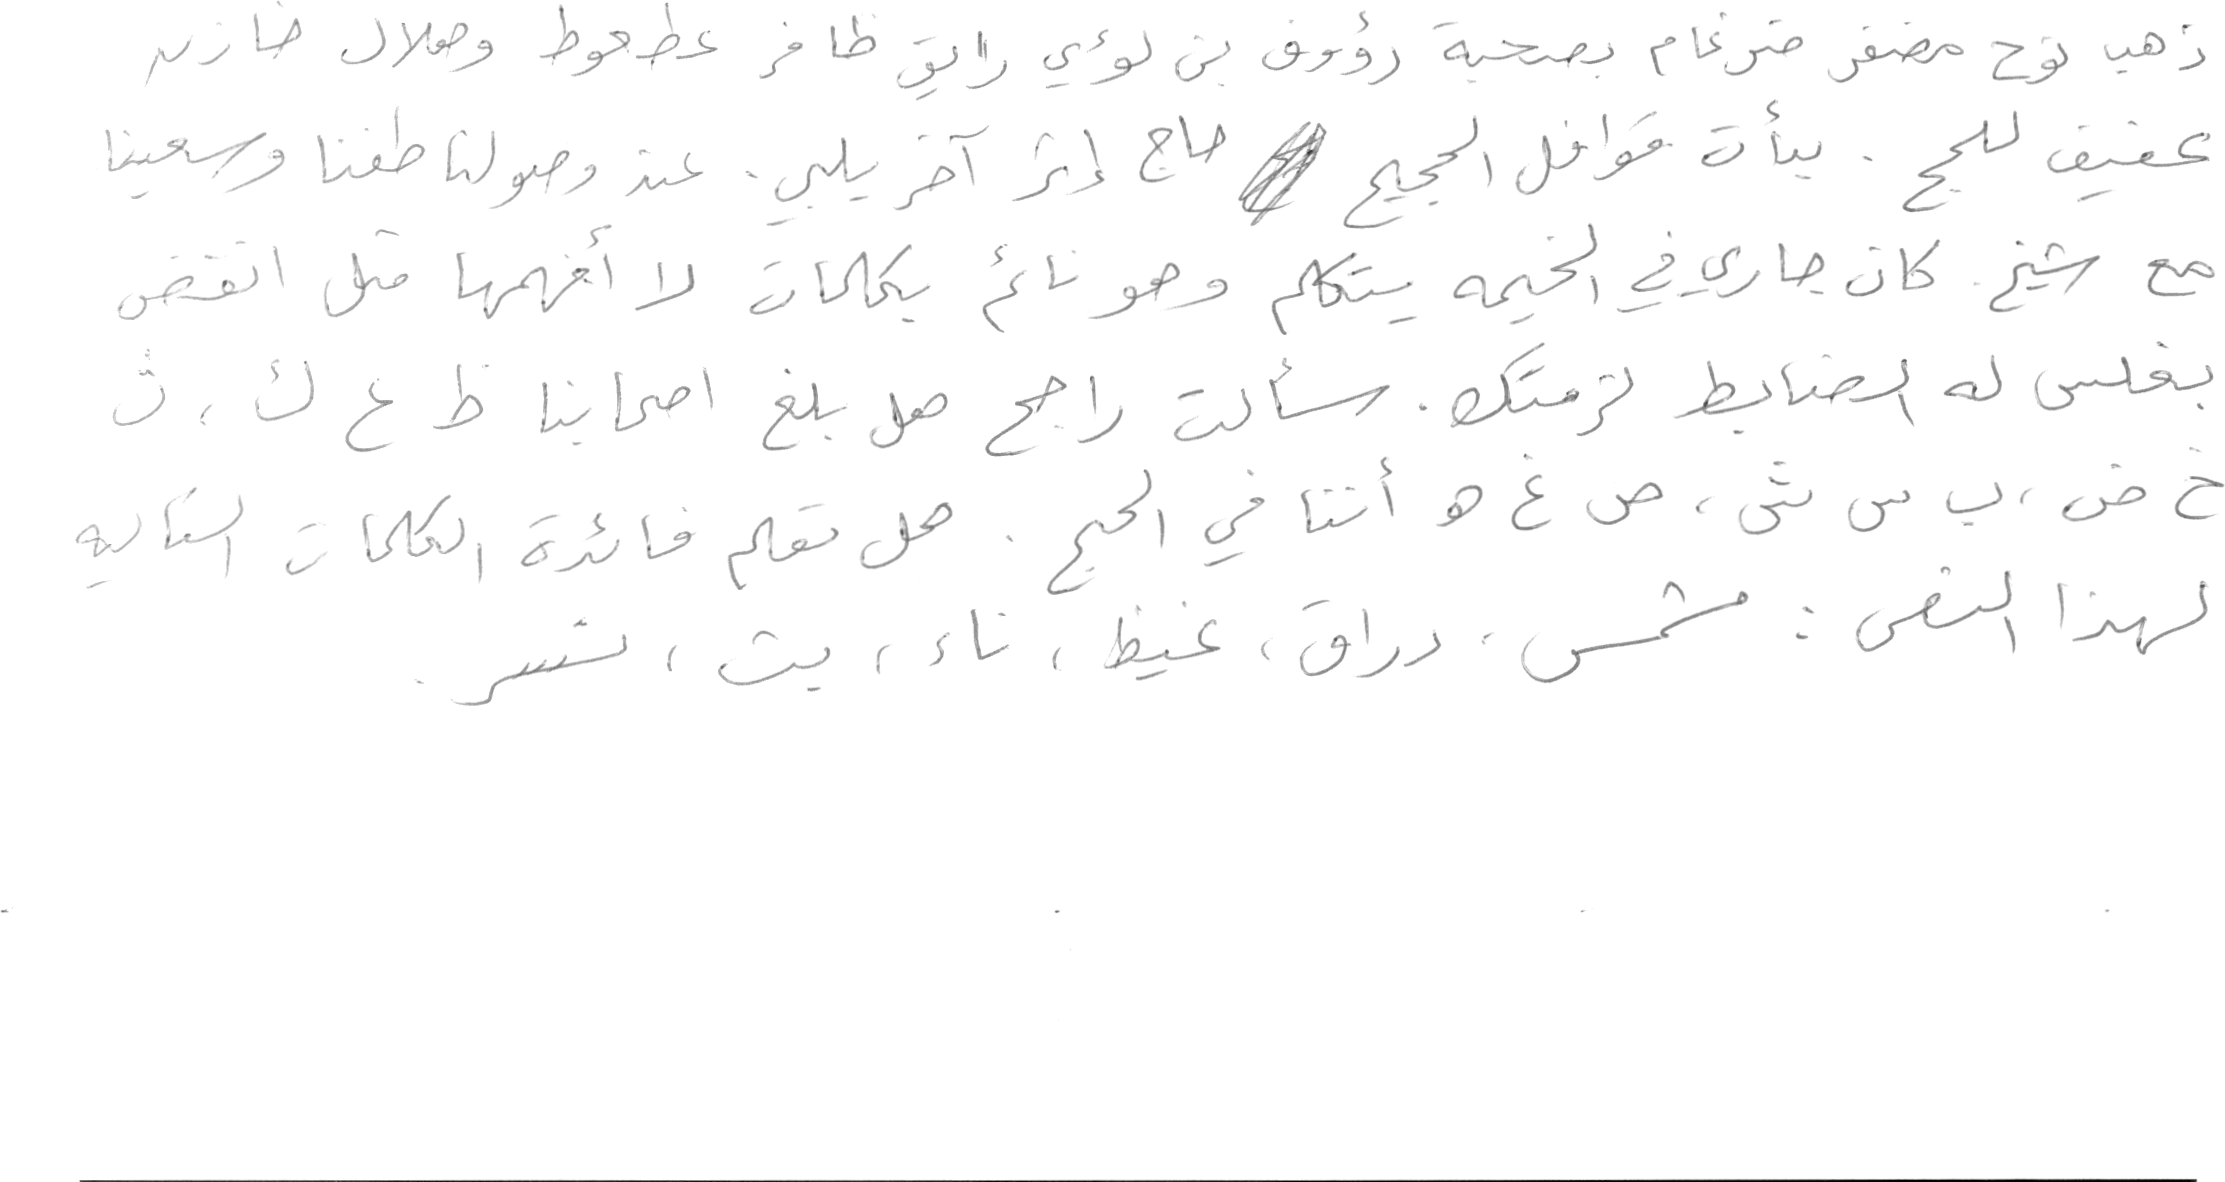 ذهب نوح مضفر ضرغام بصحبة رؤوف بن لؤي رايق ظافر عطعوط وهلال خازن
عفيف للحج . بدأت قوافل الحجيج حاج إثر آخر يلبي . عند وصولنا طفنا وسعينا
مع شيخ . كان جاري في الخيمه يتكلم وهو نائم بكلمات لا أفهمها مثل انقض
بغلس له الضابط لزمتك . سألت راجح هل بلغ اصحابنا ظ غ ك ، ث
خ ض ، ب س ش ، ص غ ه أننا في الحج . هل تعلم فائدة الكلمات التاليه
لهذا النص : مشمس ، دراق ، غيظ ، ناء ، بث ، نسر .